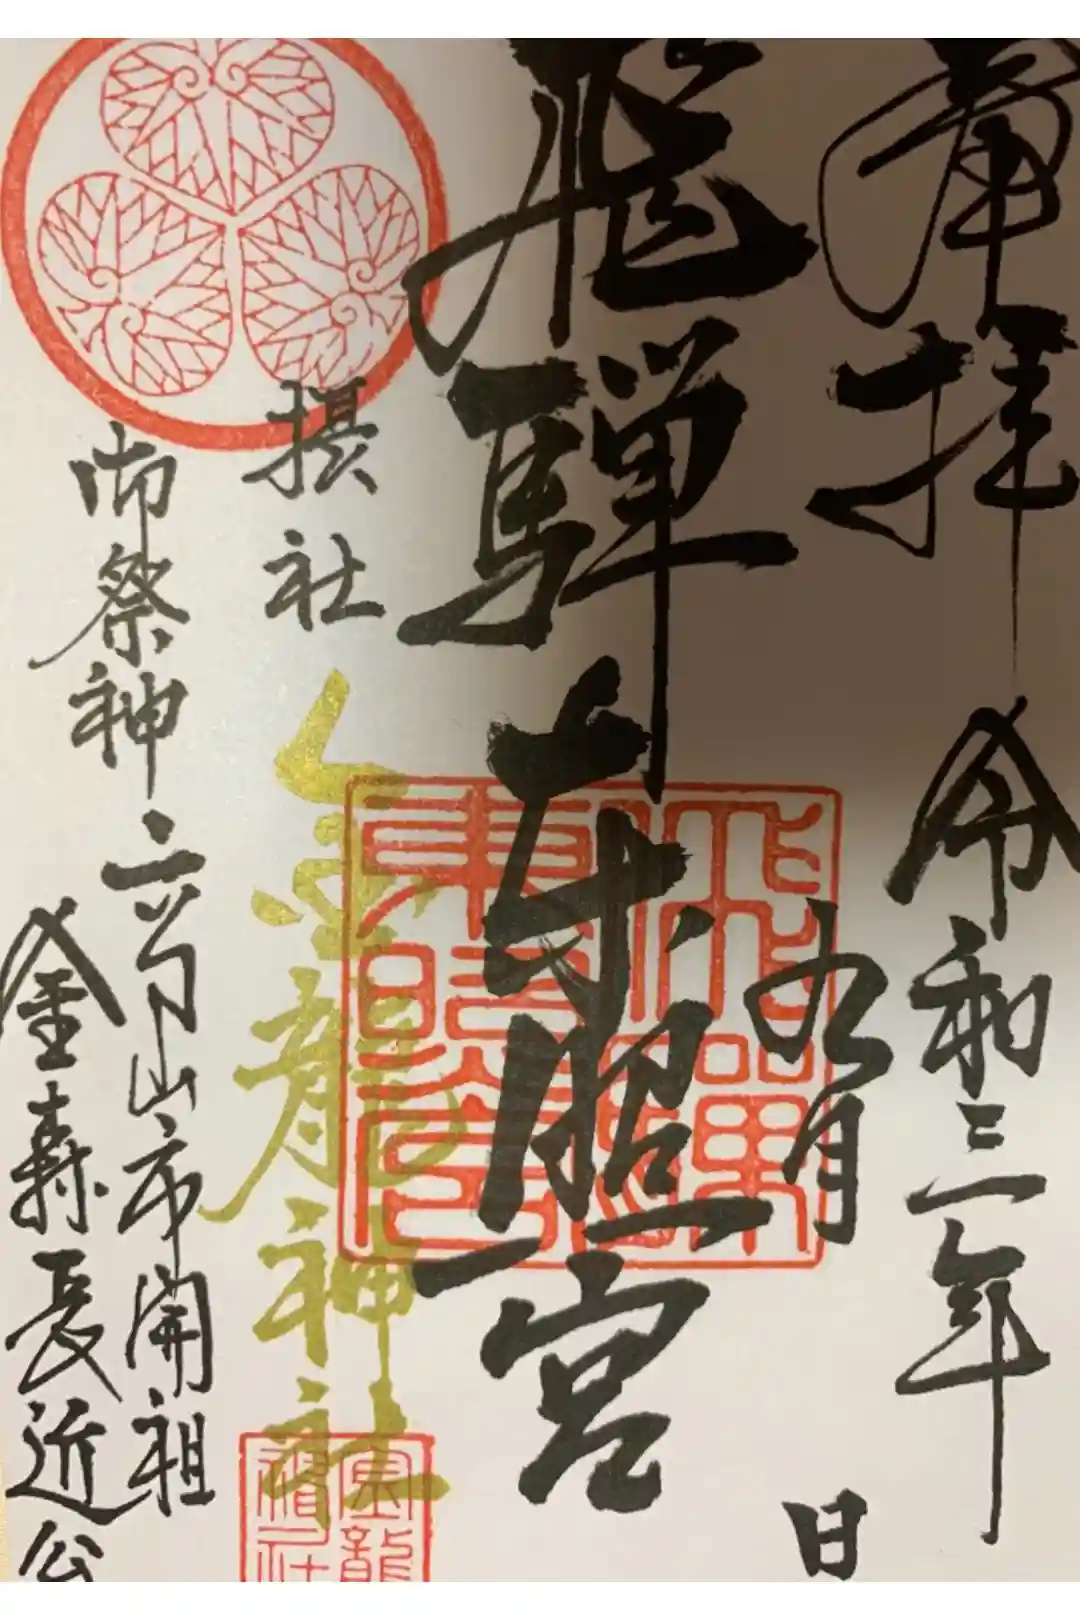 奉拝
令和三年
九月
日
飛騨東照宮
摂社
金龍神社
御祭神
高山市開祖
金森長近公
飛騨
東照宮
金龍